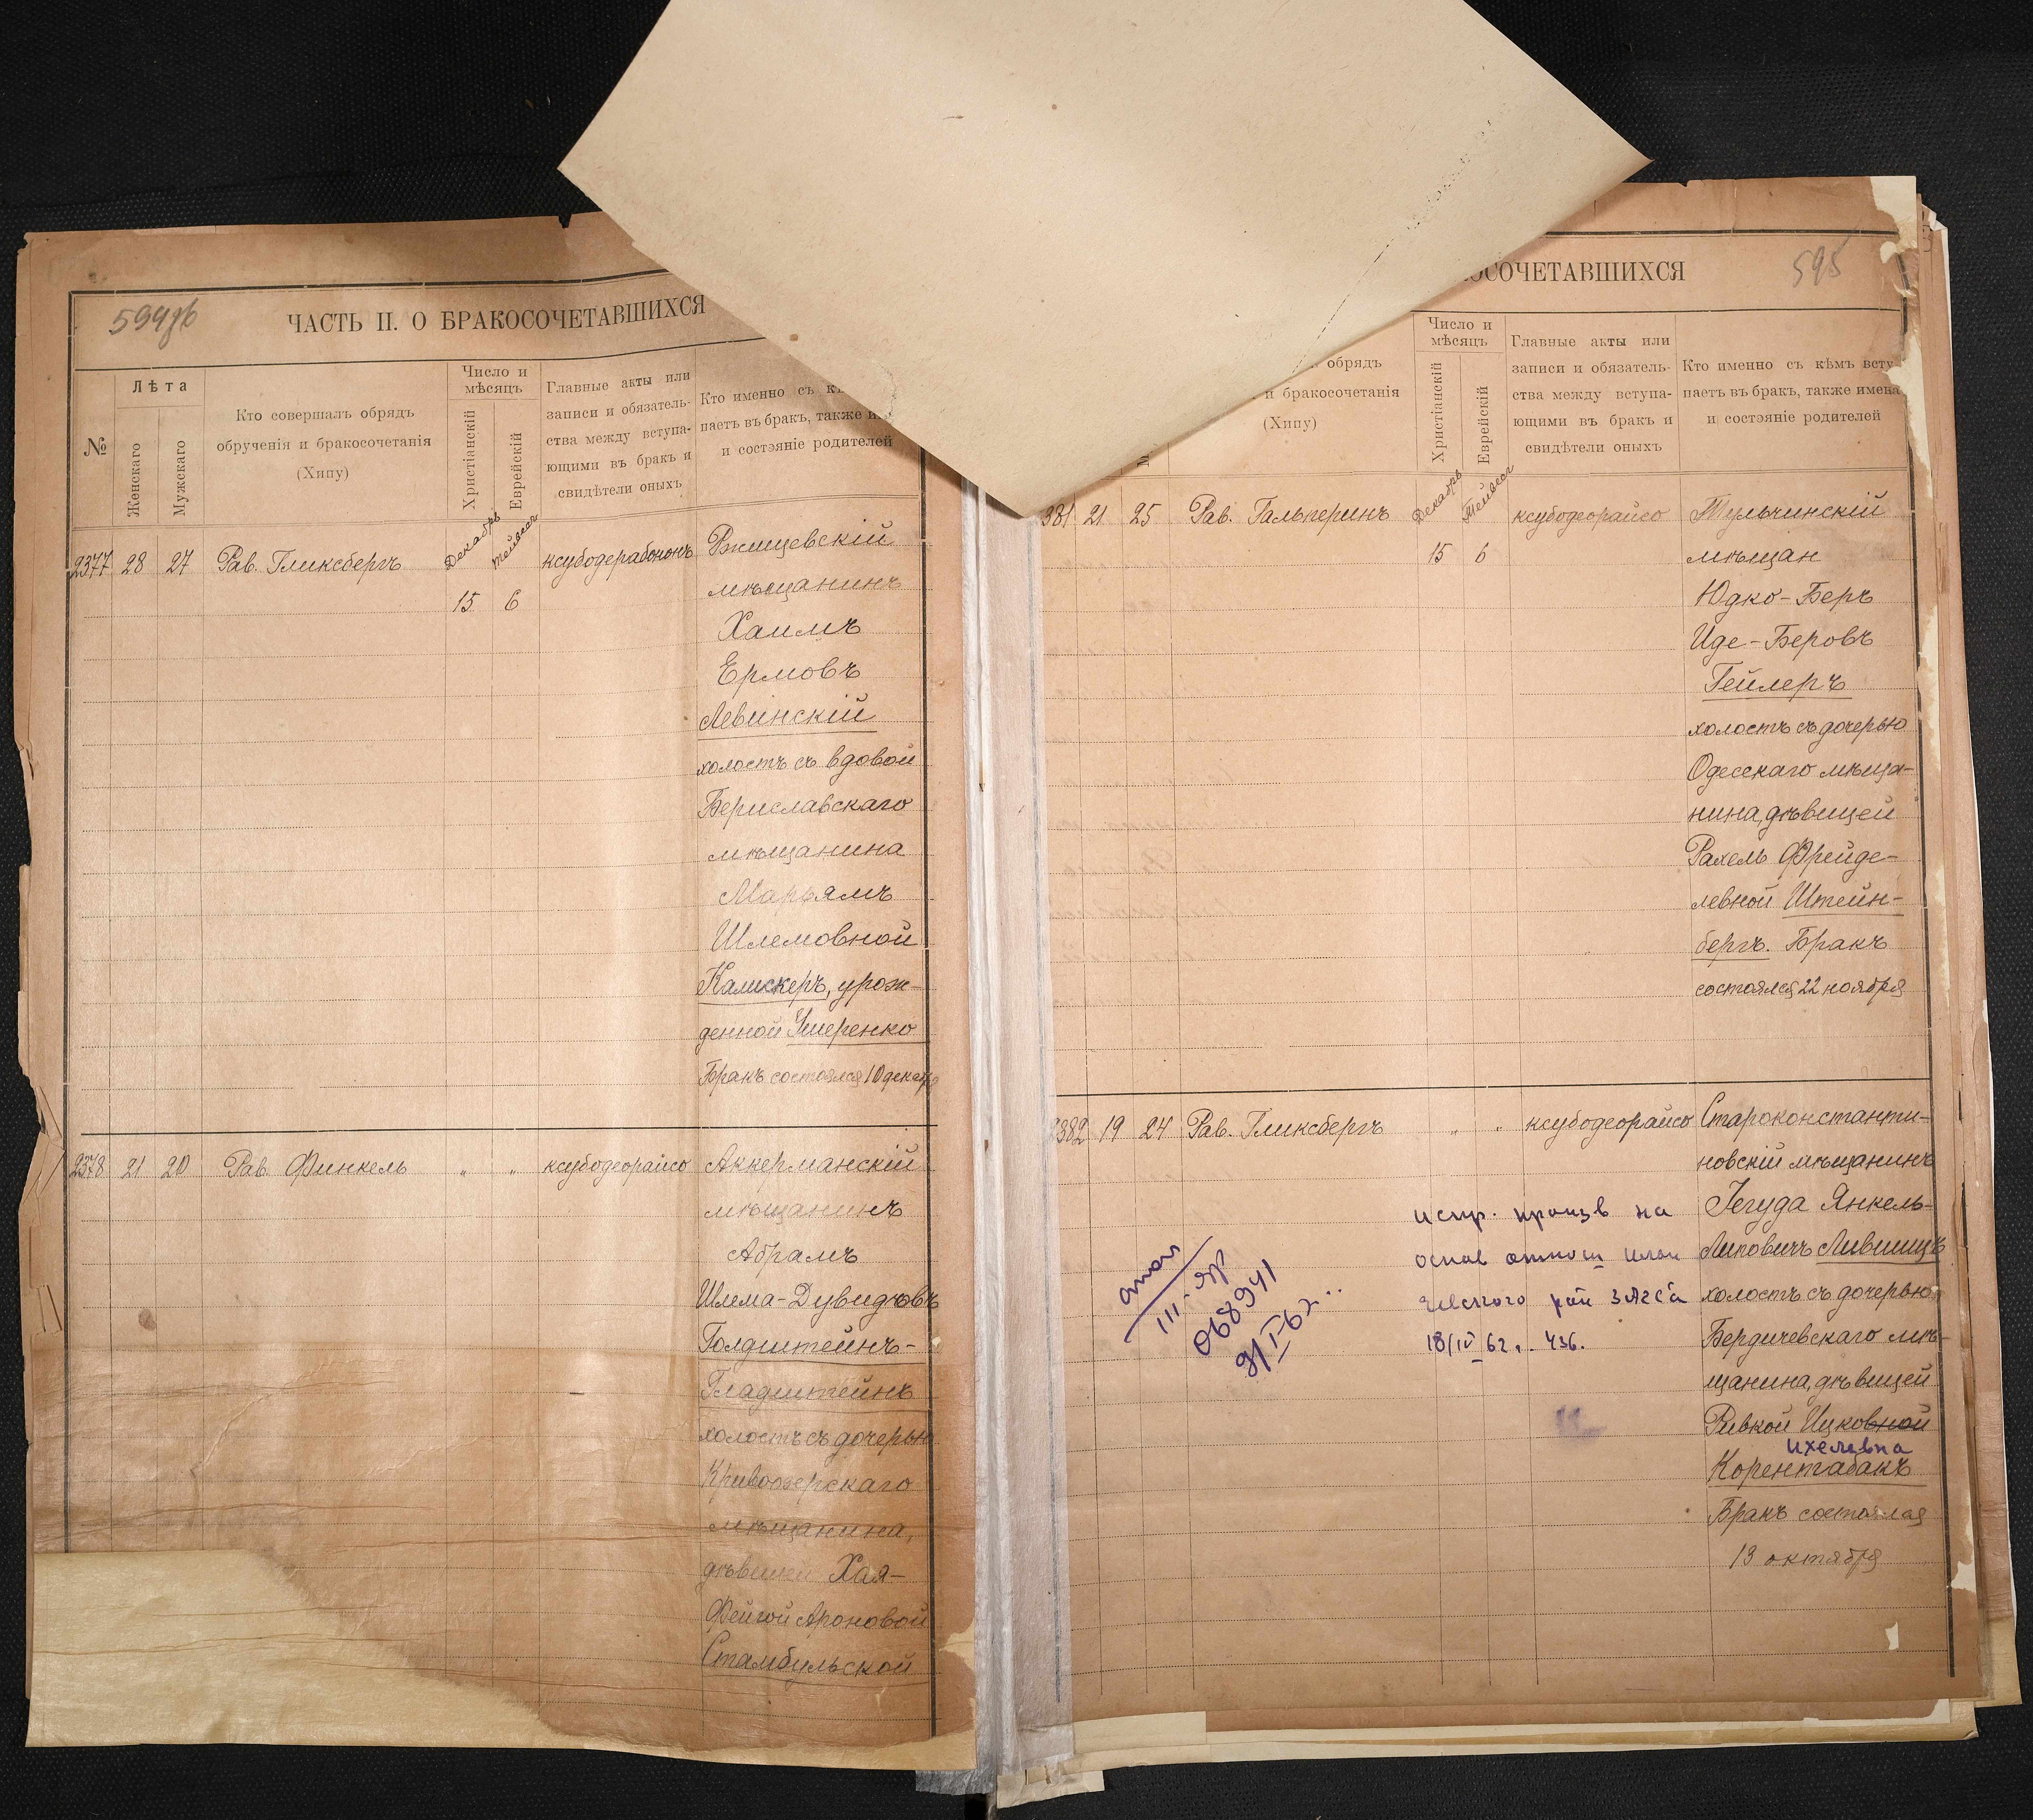 ЧАСТЬ II. О БРАКОСОЧЕТАВШИХСЯ
№
Лѣта
Женскаго
Мужскаго
Кто совершалъ обрядъ
обрученія и бракосочетанія
(Хипу)
Число и
мѣсяцъ
Христіанскій
Еврейскій
Главные акты или
записи и обязатель-
ства между вступа-
ющими въ бракъ и
свидѣтели оныхъ
Кто именно съ
паетъ въ бракъ, также
и состояніе родителей
2377 28 27 Рав. Гликсбергъ Декабрь Тейвесъ ксубодерабононъ Ржищевскій
15 6
мѣщанинъ
Хаимъ
Ермовъ
Левинскій
холостъ съ вдовой
Бериславскаго
мѣщанина
Марьямъ
Шлемовной
Калискеръ, урож-
денной Умеренко
Бракъ состоялся 10 декабр
2378 21 20 Рав. Финкель " " ксубодеорайсо Аккерманскій
мѣщанинъ
Абрамъ
Шлема-Дувидовъ
Голдштейнъ-
Гладштейнъ
холостъ съ дочерью
Кривоозерскаго
мѣщанина,
дѣвицей Хая-
Фейгой Ароновой
Стамбульской
595
ОСОЧЕТАВШИХСЯ
обрядъ
и бракосочетанія
(Хипу)
Число и
мѣсяцъ
Христіанскій
Еврейскій
Главные акты или
записи и обязатель-
ства между вступа-
ющими въ бракъ и
свидѣтели оныхъ
Кто именно съ кѣмъ всту
паетъ въ бракъ, также имена
и состояніе родителей
381 21 25 Рав. Гальперинъ Декабрь Тейвесъ ксубодеорайсо Тульчинскій
15 6 мѣщан
Юдко-Беръ
Иде-Беровъ
Гейлеръ
холостъ съ дочерью
Одесскаго мѣща-
нина, дѣвицей
Рахель Фрейде-
левной Штейн-
бергъ. Бракъ
состоялся 22 ноября
2382 19 24 Рав. Гликсбергъ " " ксубодеорайсо Староконстанти-
новскій мѣщанинъ
испр. произв на Іегуда Янкель-
Липовичъ Лившицъ
рай ЗАГСа холостъ съ дочерью
18/IV 62 г. 436. Бердичевскаго мѣ-
щанина, дѣвицей
Ривкой Ицковной
Ихелевна
Корентабакъ
Бракъ состоялся
13 октября
068941
9/I-62